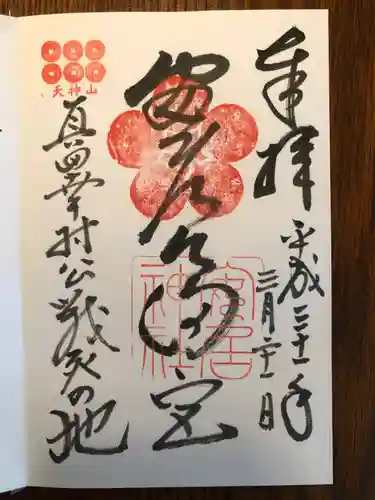 奉拝
平成三十一年
三月二十一日
安居天満宮
安居神社
天神山
真田幸村公戦死の地